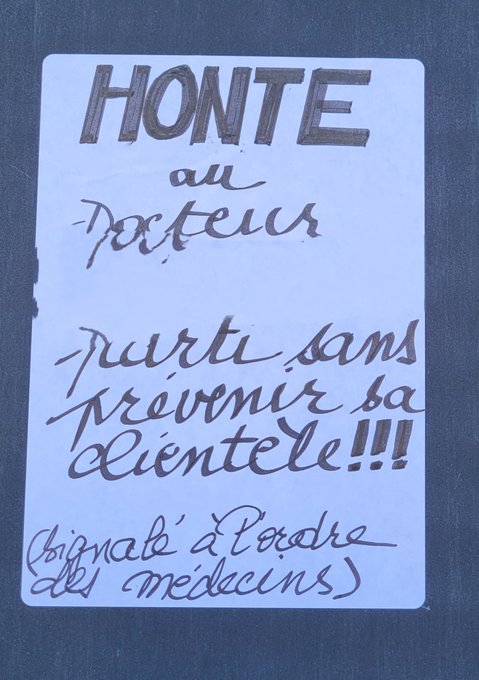 HONTE
au
Docteur
parti sans
prévenir sa
clientèle!!!
(signalé à l'ordre
des médecins)